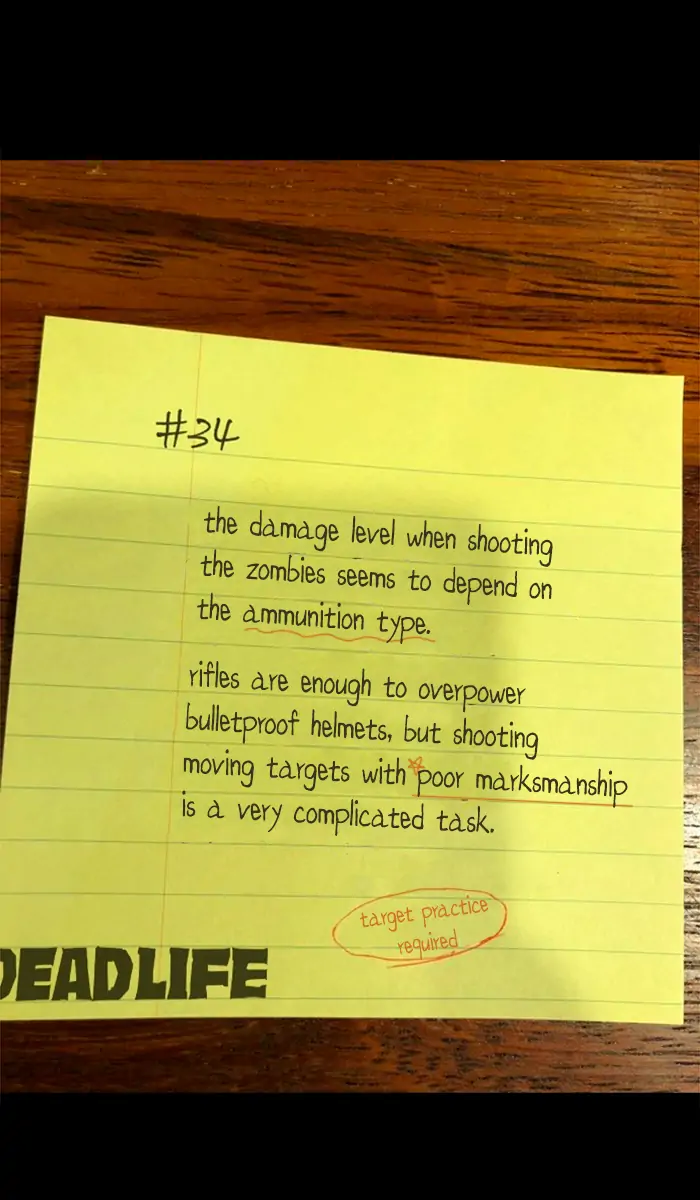 #34
the damage level when shooting
the zombies seems to depend on
the ammunition type.
rifles are enough to overpower
bulletproof helmets, but shooting
moving targets with poor marksmanship
is a very complicated task.
target practice
required
DEADLIFE